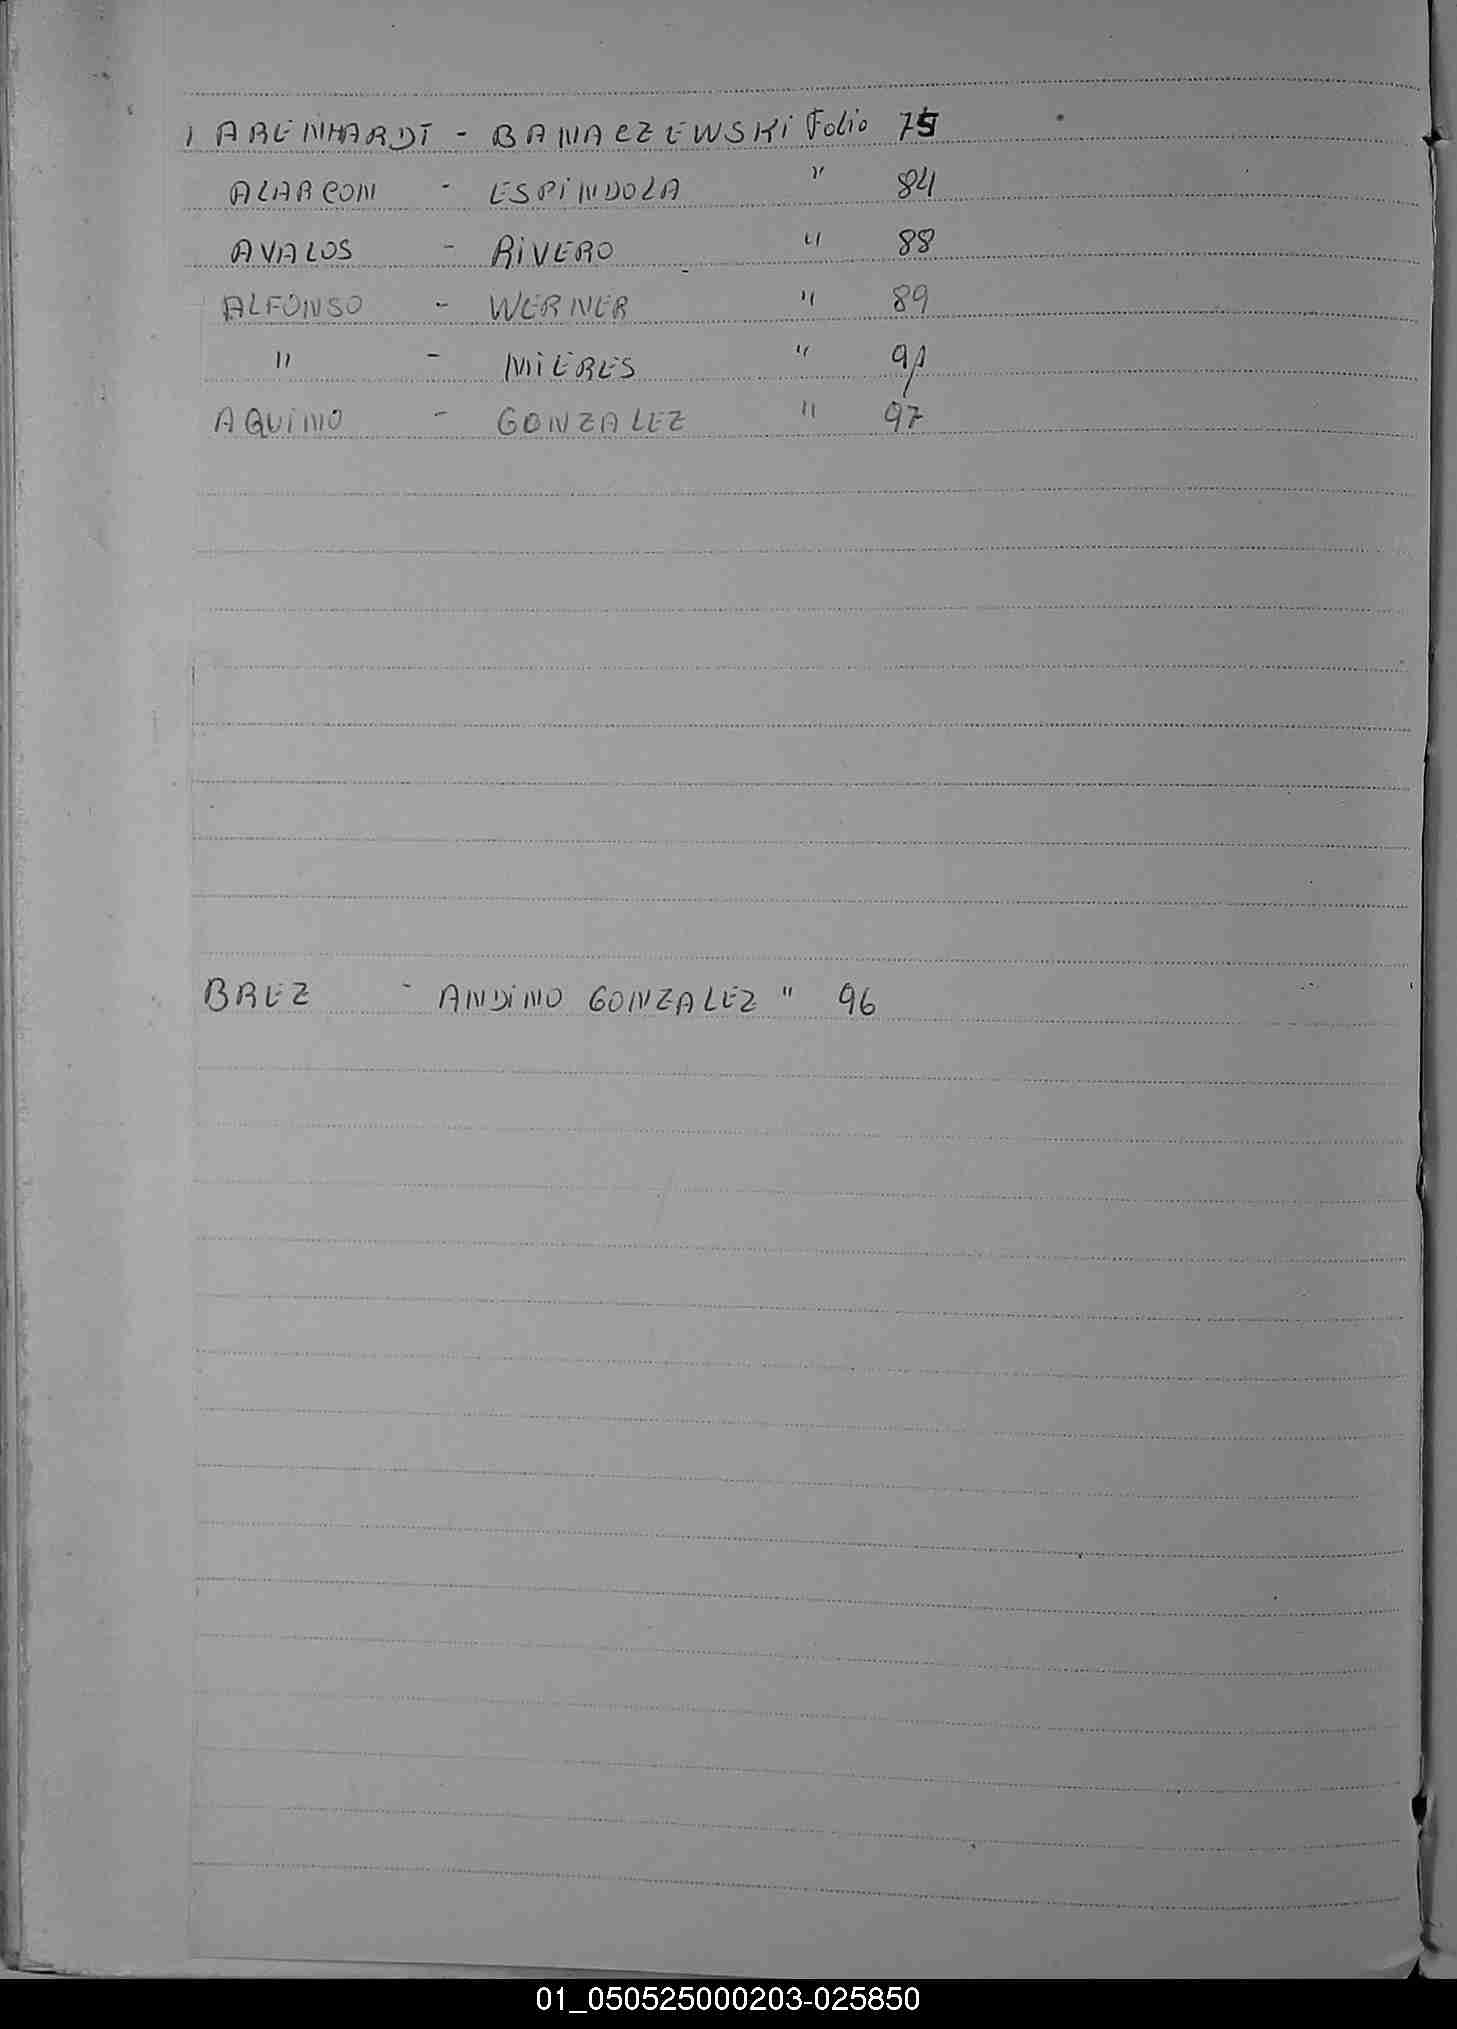 ARENHARDT - BANACZEWSKI Folio 75
ALARCON - ESPINDOLA " 84
AVALOS - RIVERO " 88
ALFONSO - WERNER " 89
" - MIERES " 91
AQUINO - GONZALEZ " 97
BAEZ - ANDINO GONZALEZ " 96
01_050525000203-025850